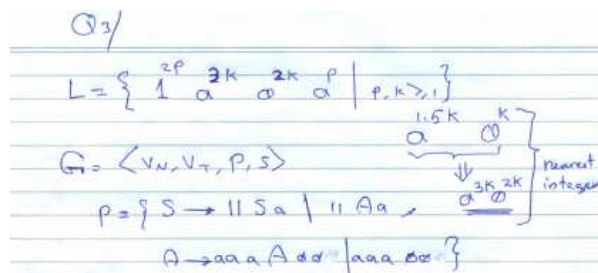 Q3/
L = { 1^2p a^3k 0^2k a^p | p, k ≥ 1 }
a^1.5k 0^k
G = < V_N, V_T, P, S >
nearest integer
a^3k 0^2k
P = { S → 11 S a | 11 A a ,
A → aaa A 00 | aaa 00 }